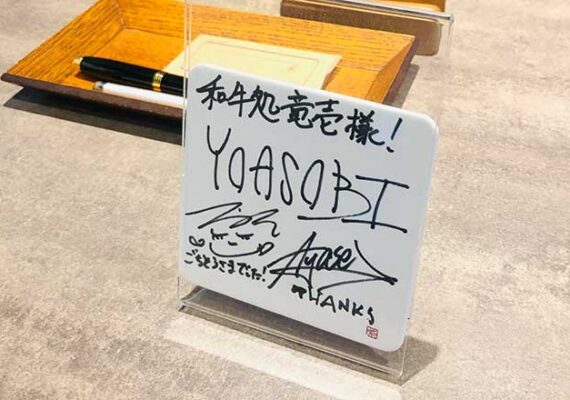 和牛処 竜壱様!
YOASOBI
Ayase
ごちそうさまでした!
THANKS